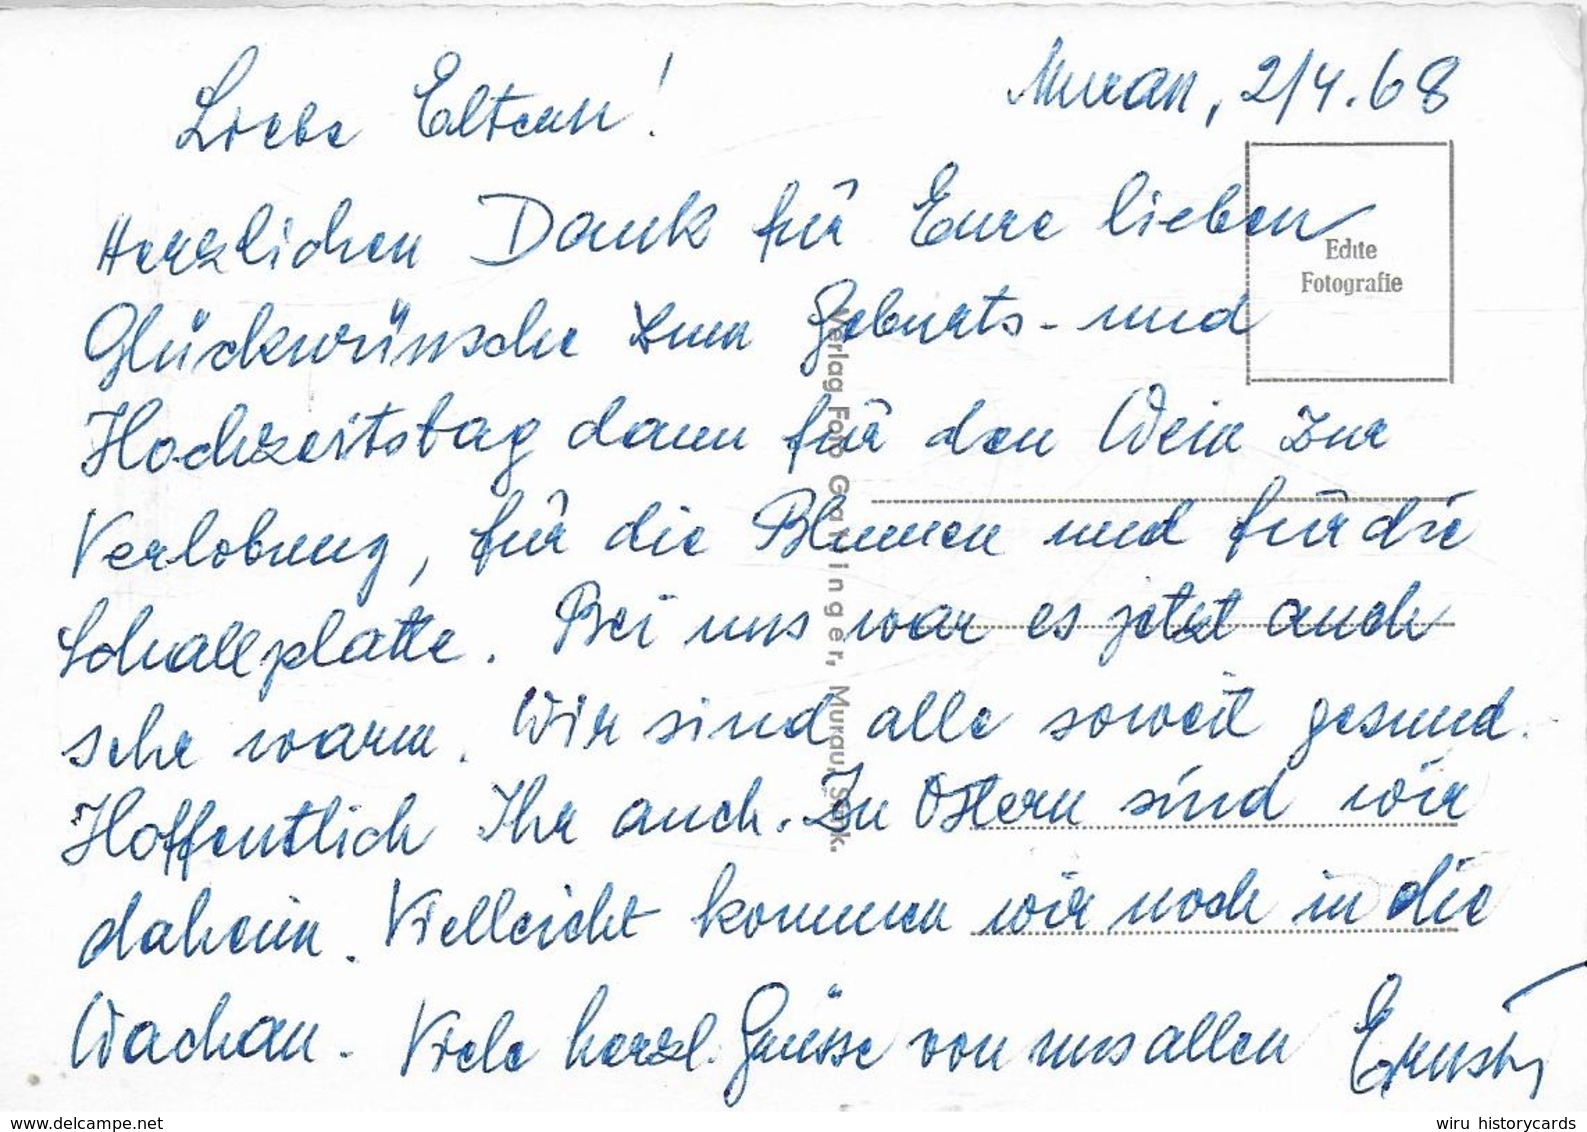 Murau, 2/4.68
Liebe Eltern!
Herzlichen Dank für Eure lieben
Glückwünsche zum Geburts- und
Hochzeitstag dann für den Wein zur
Verlobung, für die Blumen und für die
Schallplatte. Bei uns war es jetzt auch
sehr warm. Wir sind alle soweit gesund.
Hoffentlich Ihr auch. Zu Ostern sind wir
daheim. Vielleicht kommen wir noch in die
Wachau. Viele herzl. Grüsse von uns allen Ernst
Echte
Fotografie
Verlag Foto Grabinger, Murau, Stmk.
delcampe.net
wiru historycards